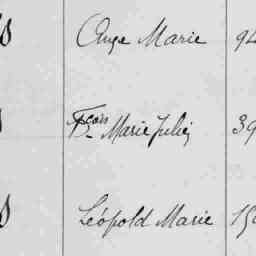 s Ange Marie 94
Fcois Marie Julien 39
s Léopold Marie 15